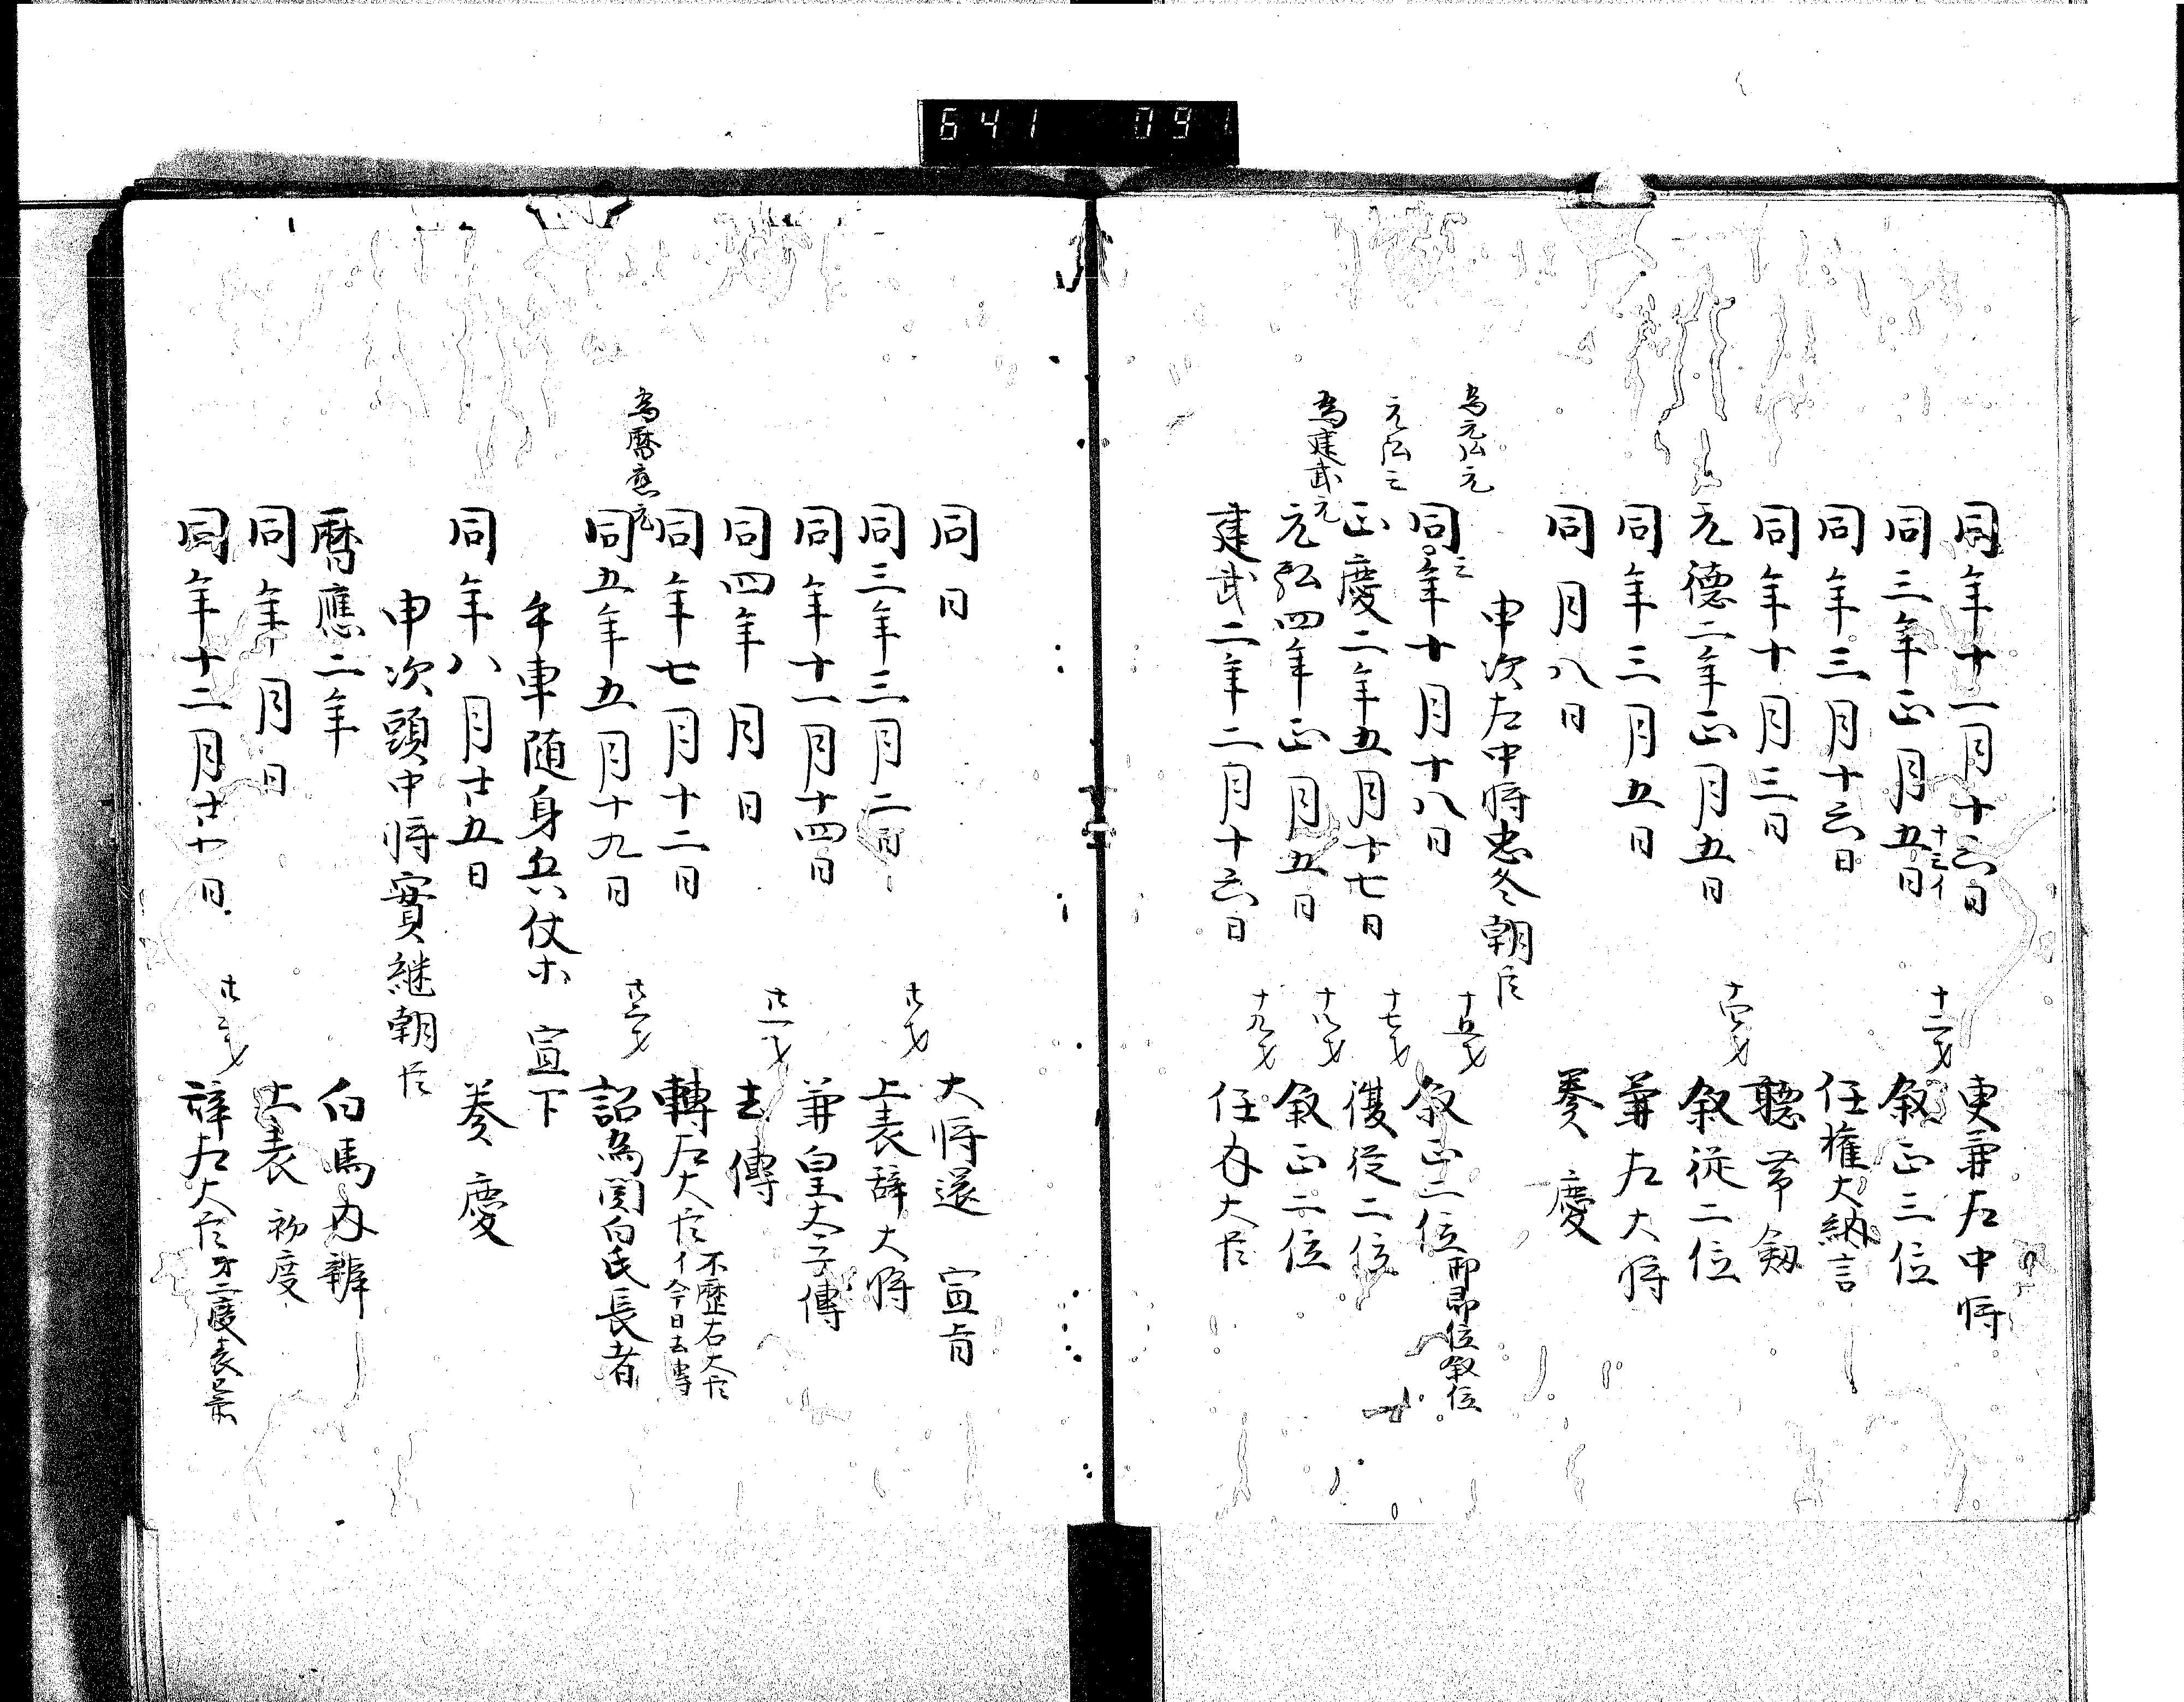 641 091
同年十二月十六日 更兼左中将
同三年正月五日 十三イ 十三才 叙正三位
同年三月十六日 任権大納言
同年十月三日 聴帯剱
元徳二年正月五日 十四才 叙従二位
同年三月五日 兼左大将
同月八日 奏慶
申次左中将忠冬朝臣
為元弘元
同三年十月十八日 十五才 叙正二位 即位叙位
元弘三
正慶二年五月十七日 十七才 復従二位
為建武元
元弘四年正月五日 十八才 叙正二位
建武二年二月十六日 十九才 任内大臣
同日 大将還 宣旨
同三年三月二日 廿才 上表辞大将
同年十一月十四日 兼皇太子傅
同四年 月 日 廿一才 去傅
同年七月十二日 轉左大臣 不歴右大臣 イ今日去傅
為暦應元
同五年五月十九日 廿二才 詔為関白氏長者
牛車随身兵仗等 宣下
同年八月廿五日 奏慶
申次頭中将實継朝臣
暦應二年 白馬内辨
同年 月 日 上表 初度
同年十二月廿一日 廿三才 辞左大臣 第二度表